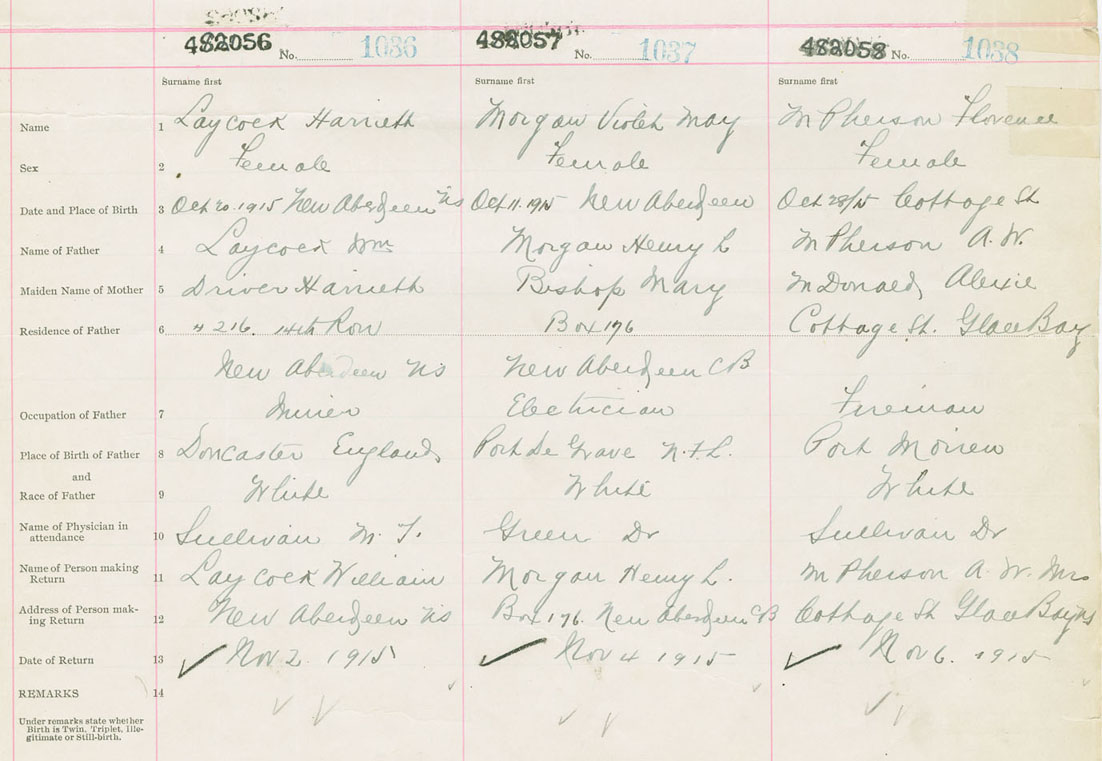 482056 No. 1036 482057 No. 1037 482058 No. 1038
Surname first Surname first Surname first
Name 1 Laycock Harrieth Morgan Violet May McPherson Florence
Sex 2 Female Female Female
Date and Place of Birth 3 Oct 20. 1915 New Aberdeen NS Oct 11. 1915 New Aberdeen Oct 28/15 Cottage St
Name of Father 4 Laycock Wm Morgan Henry L McPherson A. W.
Maiden Name of Mother 5 Driver Harrieth Bishop Mary McDonald, Alexie
Residence of Father 6 # 216. 14th Row Box 176 Cottage St. Glace Bay
New Aberdeen NS New Aberdeen CB
Occupation of Father 7 Miner Electrician Fireman
Place of Birth of Father 8 Doncaster England Port De Grave N.F.L. Port Morien
and
Race of Father 9 White White White
Name of Physician in
attendance 10 Sullivan M. T. Green Dr Sullivan Dr
Name of Person making
Return 11 Laycock William Morgan Henry L. McPherson A. W. Mrs
Address of Person mak-
ing Return 12 New Aberdeen NS Box 176 New Aberdeen CB Cottage St Glace Bay NS
Date of Return 13 Nov. 2 1915 Nov 4 1915 Nov 6. 1915
REMARKS 14
Under remarks state whether
Birth is Twin, Triplet, Ille-
gitimate or Still-birth.